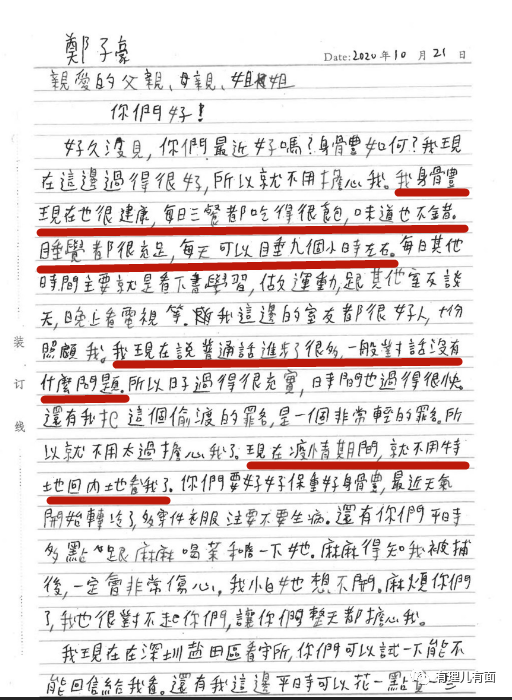 鄭子豪
Date: 2020 年 10 月 21 日
親愛的父親、母親、姐姐
你們好！
好久沒見，你們最近好嗎？身骨豊如何？我現
在這邊過得很好，所以就不用擔心我。我身骨豊
現在也很健康，每日三餐都吃得很飽，味道也不錯。
睡覺都很充足，每天可以睡九個小時左右。每日其他
時間主要就是看下書學習，做久運動，跟其他室友談
天，晚上看電視等。我這邊的室友都很好人，十份
照顧我。我現在說普通話進步了很多，一般對話沒有
什麼問題。所以日子過得很充實，時間也過得很快。
還有我犯這個偷渡的罪名，是一個非常輕的罪名。所
以就不用太過擔心我了。現在疫情期間，就不用特
地回內地看我了。你們要好好保重好身骨豊，最近天氣
開始轉冷了，多穿件衣服注要不要生病。還有你們平時
多點跟麻麻喝茶和瞻一下她。麻麻得知我被捕
後，一定會非常傷心，我小白她想不開。麻煩你們
了，我也很對不起你們，讓你們整天都擔心我。
我現在在深圳鹽田區看守所，你們可以試一下能不
能回信給我看。還有我這邊平日時可以花一點
装
订
线
有理儿有面